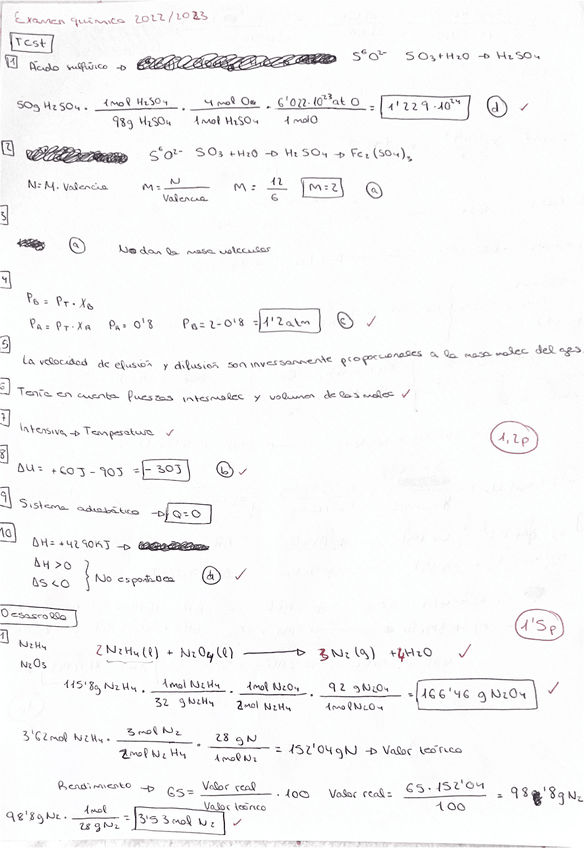 Examen química 2022/2023
Test
1 Ácido sulfúrico → S⁶O²⁻ SO₃+H₂O → H₂SO₄
50g H₂SO₄ · 1mol H₂SO₄ / 98g H₂SO₄ · 4 mol O / 1mol H₂SO₄ · 6'022·10²³ at O / 1 mol O = 1'229·10²⁴ d ✓
2 S⁶O²⁻ SO₃+H₂O → H₂SO₄ → Fe₂(SO₄)₃
N=M·Valencia M= N / Valencia M= 12 / 6 M=2 a
3
a No dan la masa molecular
4
P_B = P_T · X_B
P_A = P_T · X_A P_A = 0'8 P_B = 2-0'8 = 1'2 atm c ✓
5
La velocidad de efusión y difusión son inversamente proporcionales a la masa molec del gas.
6 Tenía en cuenta fuerzas intermolec y volumen de las molec ✓
7
Intensiva → Temperatura ✓
1,2p
8
ΔU = +60J - 90J = -30J b ✓
9
Sistema adiabático → Q=0
10
ΔH=+4290KJ →
ΔH>0
ΔS<0 } No espontánea d ✓
Desarrollo
1'5p
1 N₂H₄
N₂O₅
2N₂H₄(l) + N₂O₄(l) → 3N₂(g) + 4H₂O ✓
115'8g N₂H₄ · 1mol N₂H₄ / 32 g N₂H₄ · 1mol N₂O₄ / 2mol N₂H₄ · 92 g N₂O₄ / 1mol N₂O₄ = 166'46 g N₂O₄ ✓
3'62mol N₂H₄ · 3mol N₂ / 2mol N₂H₄ · 28 g N / 1mol N₂ = 152'04g N → Valor teórico
Rendimiento → 65 = Valor real / Valor teórico · 100 Valor real = 65·152'04 / 100 = 98'8g N₂
98'8g N₂ · 1mol / 28g N₂ = 3'53 mol N₂ ✓